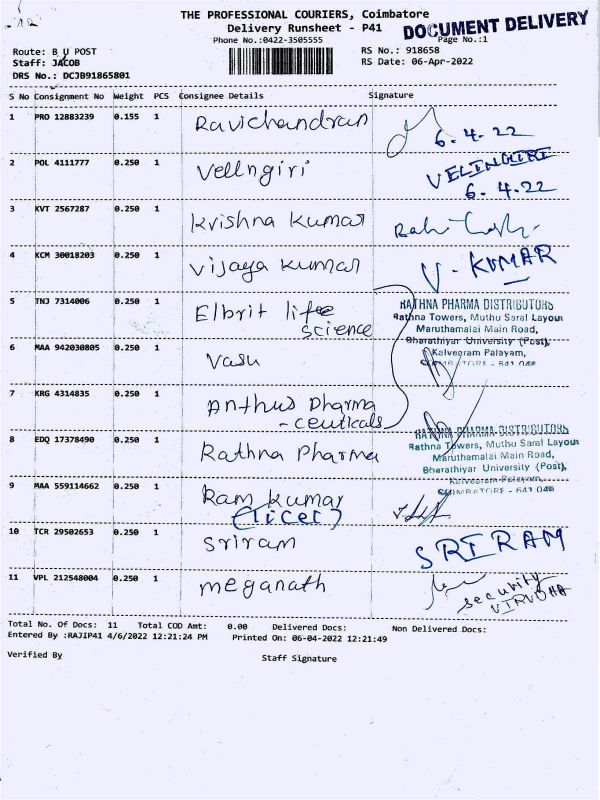 THE PROFESSIONAL COURIERS, Coimbatore
DOCUMENT DELIVERY
Delivery Runsheet - P41
Phone No.:0422-3505555 Page No.:1
Route: B U POST RS No.: 918658
Staff: JACOB RS Date: 06-Apr-2022
DRS No.: DCJB91865801
S No Consignment No Weight PCS Consignee Details Signature
1 PRO 12883239 0.155 1 Ravichandran 6.4.22
2 POL 4111777 0.250 1 Vellngiri VELINGIRI
6.4.22
3 KVT 2567287 0.250 1 Krishna Kumar
4 KCM 30018203 0.250 1 Vijaya Kumar V-KUMAR
5 TNJ 7314006 0.250 1 Elbrit life science
RATHNA PHARMA DISTRIBUTORS
Rathna Towers, Muthu Saral Layout
Maruthamalai Main Road,
Bharathiyar University (Post),
Kalveeram Palayam,
COIMBATORE - 641 046
6 MAA 942030805 0.250 1 Vasu
7 KRG 4314835 1 Anthus Pharma
-ceuticals
8 EDQ 17378490 0.250 1 Rathna Pharma
RATHNA PHARMA DISTRIBUTORS
Rathna Towers, Muthu Saral Layout
Maruthamalai Main Road,
Bharathiyar University (Post),
Kalveeram Palayam,
COIMBATORE - 641 046
9 MAA 559114662 0.250 1 Ram Kumar
10 TCR 29502653 0.250 1 Sriram SRIRAM
11 VPL 212548004 0.250 1 Meganath security
Total No. Of Docs: 11 Total COD Amt: 0.00 Delivered Docs: Non Delivered Docs:
Entered By :RAJIP41 4/6/2022 12:21:24 PM Printed On: 06-04-2022 12:21:49
Verified By Staff Signature